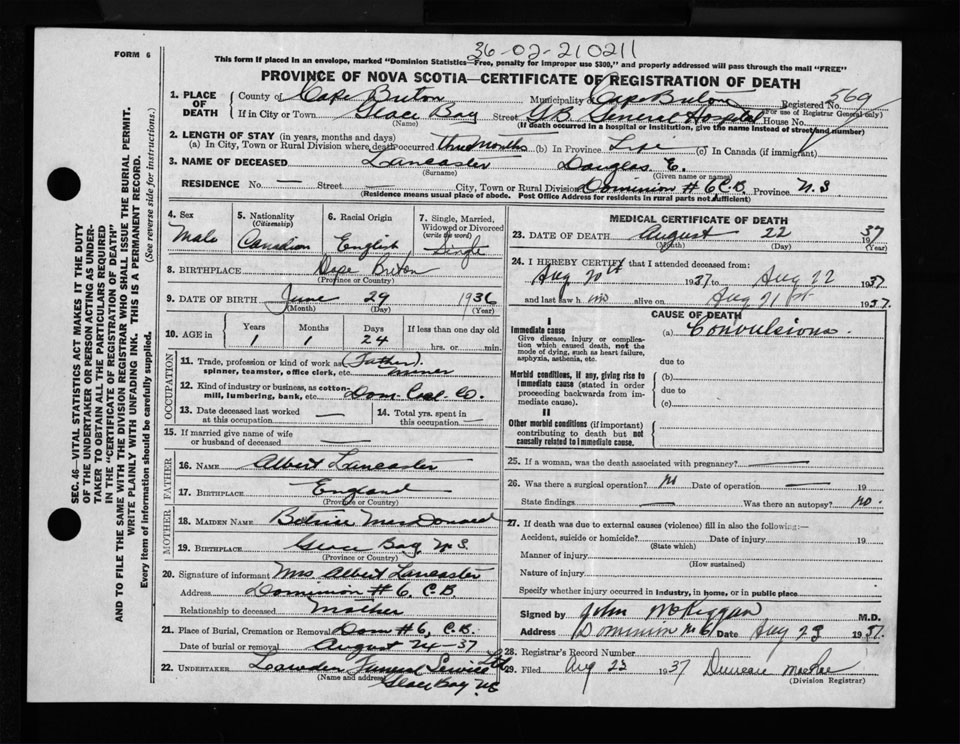 36-02-210211
FORM 6
This form if placed in an envelope, marked "Dominion Statistics—Free, penalty for improper use $300," and properly addressed will pass through the mail "FREE"
PROVINCE OF NOVA SCOTIA—CERTIFICATE OF REGISTRATION OF DEATH
SEC. 46—VITAL STATISTICS ACT MAKES IT THE DUTY
OF THE UNDERTAKER OR PERSON ACTING AS UNDER-
TAKER TO OBTAIN ALL THE PARTICULARS REQUIRED
IN THE "CERTIFICATE OF REGISTRATION OF DEATH"
AND TO FILE THE SAME WITH THE DIVISION REGISTRAR WHO SHALL ISSUE THE BURIAL PERMIT.
WRITE PLAINLY WITH UNFADING INK. THIS IS A PERMANENT RECORD.
Every item of information should be carefully supplied. (See reverse side for instructions.)
1. PLACE OF DEATH County of Cape Breton Municipality of Cape Breton Registered No. 569
(Name) (For use of Registrar General only)
If in City or Town Glace Bay Street G.B. General Hospital House No.
(Name) (If death occurred in a hospital or institution, give the name instead of street and number)
2. LENGTH OF STAY (in years, months and days)
(a) In City, Town or Rural Division where death occurred three months (b) In Province Life (c) In Canada (if immigrant)
3. NAME OF DECEASED Lancaster Douglas E.
(Surname) (Given name or names)
RESIDENCE No. — Street — City, Town or Rural Division Dominion #6, C.B. Province N.S
(Residence means usual place of abode. Post Office Address for residents in rural parts not sufficient)
4. Sex 5. Nationality 6. Racial Origin 7. Single, Married,
(Citizenship) Widowed or Divorced
(write the word)
Male Canadian English Single
8. BIRTHPLACE Cape Breton
(Province or Country)
9. DATE OF BIRTH June 29 1936
(Month) (Day) (Year)
10. AGE in Years Months Days If less than one day old
1 1 24 hrs. or min.
OCCUPATION
11. Trade, profession or kind of work as (Father)
spinner, teamster, office clerk, etc. miner
12. Kind of industry or business, as cotton-
mill, lumbering, bank, etc. Dom. Coal Co.
13. Date deceased last worked 14. Total yrs. spent in
at this occupation — this occupation —
15. If married give name of wife
or husband of deceased —
FATHER
16. NAME Albert Lancaster
17. BIRTHPLACE England
(Province or Country)
MOTHER
18. MAIDEN NAME MacDonald
19. BIRTHPLACE Glace Bay, N.S.
(Province or Country)
20. Signature of informant Mrs Albert Lancaster
Address Dominion #6, C.B.
Relationship to deceased Mother
21. Place of Burial, Cremation or Removal Dom #6, C.B.
Date of burial or removal August 24-37
22. UNDERTAKER Funeral Service Ltd
(Name and address) Glace Bay NS
MEDICAL CERTIFICATE OF DEATH
23. DATE OF DEATH August 22 1937
(Month) (Day) (Year)
24. I HEREBY CERTIFY that I attended deceased from:
Aug 20th 1937 to Aug 22 1937
and last saw h im alive on Aug 21st 1937.
CAUSE OF DEATH
I
Immediate cause (a) Convulsions.
Give disease, injury or complica-
tion which caused death, not the
mode of dying, such as heart failure,
asphyxia, asthenia, etc. due to
Morbid conditions, if any, giving rise to (b)
immediate cause (stated in order due to
proceeding backwards from im-
mediate cause). (c)
II
Other morbid conditions (if important)
contributing to death but not
causally related to immediate cause.
25. If a woman, was the death associated with pregnancy? —
26. Was there a surgical operation? No Date of operation — 19
State findings — Was there an autopsy? no.
27. If death was due to external causes (violence) fill in also the following:—
Accident, suicide or homicide? Date of injury 19
(State which)
Manner of injury
(How sustained)
Nature of injury
Specify whether injury occurred in industry, in home, or in public place
Signed by John McKiggan M.D.
Address Dominion No 6 Date Aug 23 1937.
28. Registrar's Record Number
29. Filed Aug 23 1937 Duncan MacRae
(Division Registrar)